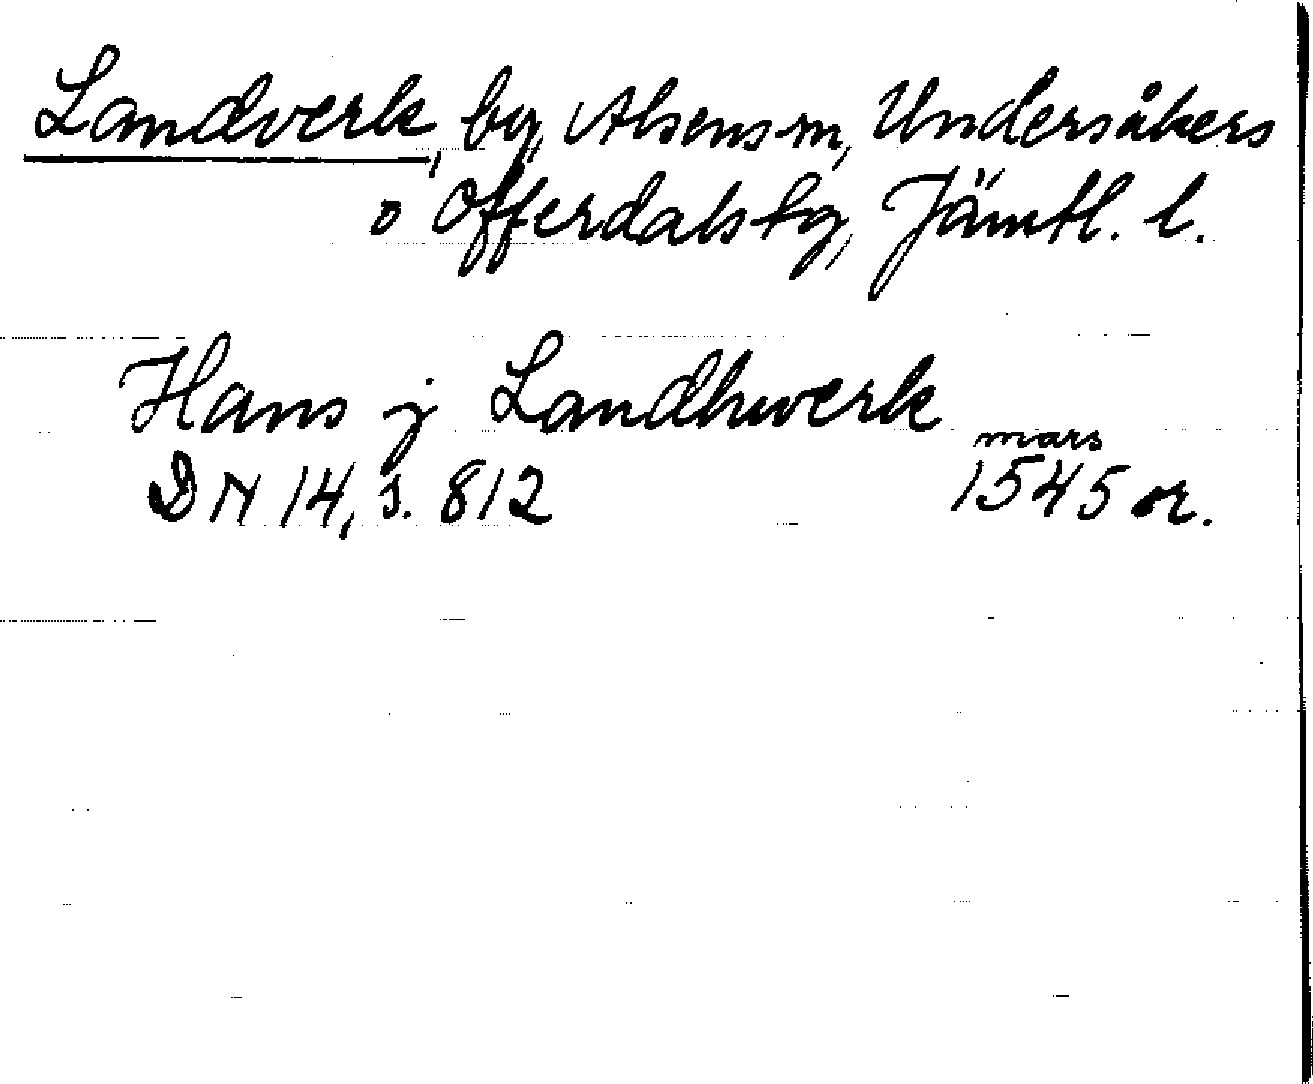 Landverk, by, Alsens sn, Undersåkers
o Offerdals tg, Jämtl. l.
Hans j Landhwerk
mars
DN 14, s. 812 1545 or.